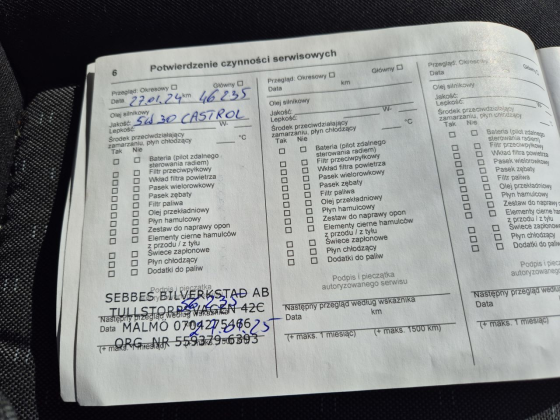 6 Potwierdzenie czynności serwisowych
Przegląd: Okresowy Główny
Data 27.01.24 km 46235
Olej silnikowy
Jakość: 5W30 CASTROL W-
Lepkość:
Środek przeciwdziałający
zamarzaniu, płyn chłodzący °C
Tak Nie
Bateria (pilot zdalnego
sterowania radiem)
Filtr przeciwpyłkowy
Wkład filtra powietrza
Pasek wielorowkowy
Pasek zębaty
Filtr paliwa
Olej przekładniowy
Płyn hamulcowy
Zestaw do naprawy opon
Elementy cierne hamulców
z przodu / z tyłu
Świece zapłonowe
Płyn chłodzący
Dodatki do paliw
Podpis i pieczątka
SEBBES BILVERKSTAD AB
42C
Następny przegląd według wskaźnika
Data MALMÖ 0704275466
ORG. NR 559379-6393
(+ maks. 1 miesiąc)
Przegląd: Okresowy Główny
Data km
Olej silnikowy
Jakość: W-
Lepkość:
Środek przeciwdziałający
zamarzaniu, płyn chłodzący °C
Tak Nie
Bateria (pilot zdalnego
sterowania radiem)
Filtr przeciwpyłkowy
Wkład filtra powietrza
Pasek wielorowkowy
Pasek zębaty
Filtr paliwa
Olej przekładniowy
Płyn hamulcowy
Zestaw do naprawy opon
Elementy cierne hamulców
z przodu / z tyłu
Świece zapłonowe
Płyn chłodzący
Dodatki do paliw
Podpis i pieczątka
autoryzowanego serwisu
Następny przegląd według wskaźnika
Data km
(+ maks. 1 miesiąc) (+ maks. 1500 km)
Przegląd: Okresowy
Data
Olej silnikowy
Jakość:
Lepkość:
Środek przeciwdziałający
zamarzaniu, płyn chłodzący
Tak Nie
Bateria (pilot zdalnego
sterowania radiem)
Filtr przeciwpyłkowy
Wkład filtra powietrza
Pasek wielorowkowy
Pasek zębaty
Filtr paliwa
Olej przekładniowy
Płyn hamulcowy
Zestaw do naprawy
Elementy cierne
z przodu / z tyłu
Świece zapłonowe
Płyn chłodzący
Dodatki do paliw
Podpis i
autoryzowanego
Następny przegląd według
Data
(+ maks. 1 miesiąc)